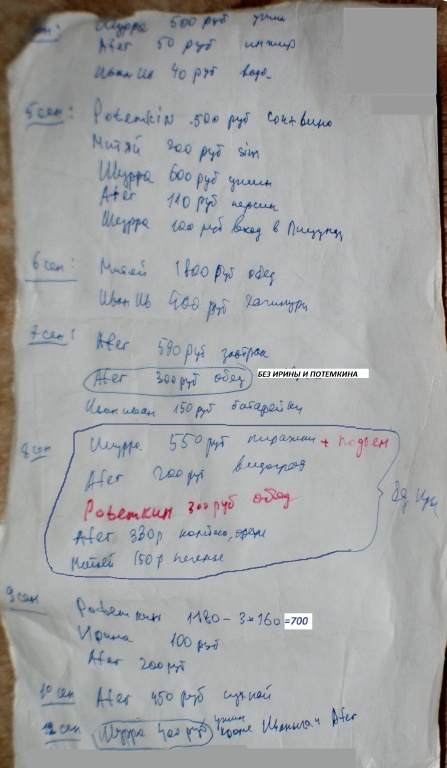 Шурра 500 руб ужин
Afer 50 руб инжир
Иван Ив 40 руб вода
5 сен: Potemkin 500 руб сок+вино
Митяй 200 руб sim
Шурра 600 руб ужин
Afer 110 руб персик
Шурра 100 руб вход в Пицунду
6 сен: Митяй 1800 руб обед
Иван Ив 400 руб хачапури
7 сен: Afer 590 руб завтрак
Afer 300 руб обед БЕЗ ИРИНЫ И ПОТЕМКИНА
Иван иван 150 руб батарейки
8 сен Шурра 550 руб пирожки + подъем
Afer 200 руб виноград
Potemкин 300 руб обед
Afer 330 р
Митяй 150 р печенье
9 сен
1180 - 3*160 =700
Ирина 100 руб
Afer 200 руб
10 сен Afer 450 руб
12 сен Шурра 400 руб ужин кроме Afer